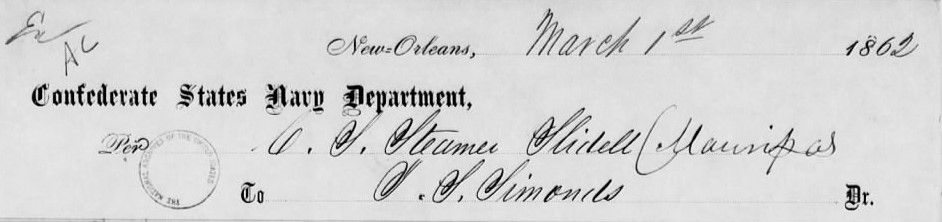 Ex
New-Orleans, March 1st 1862
AC
Confederate States Navy Department,
Per C. S. Steamer Slidell (Mauripas
THE NATIONAL ARCHIVES OF THE UNITED STATES
To T. S. Simonds Dr.